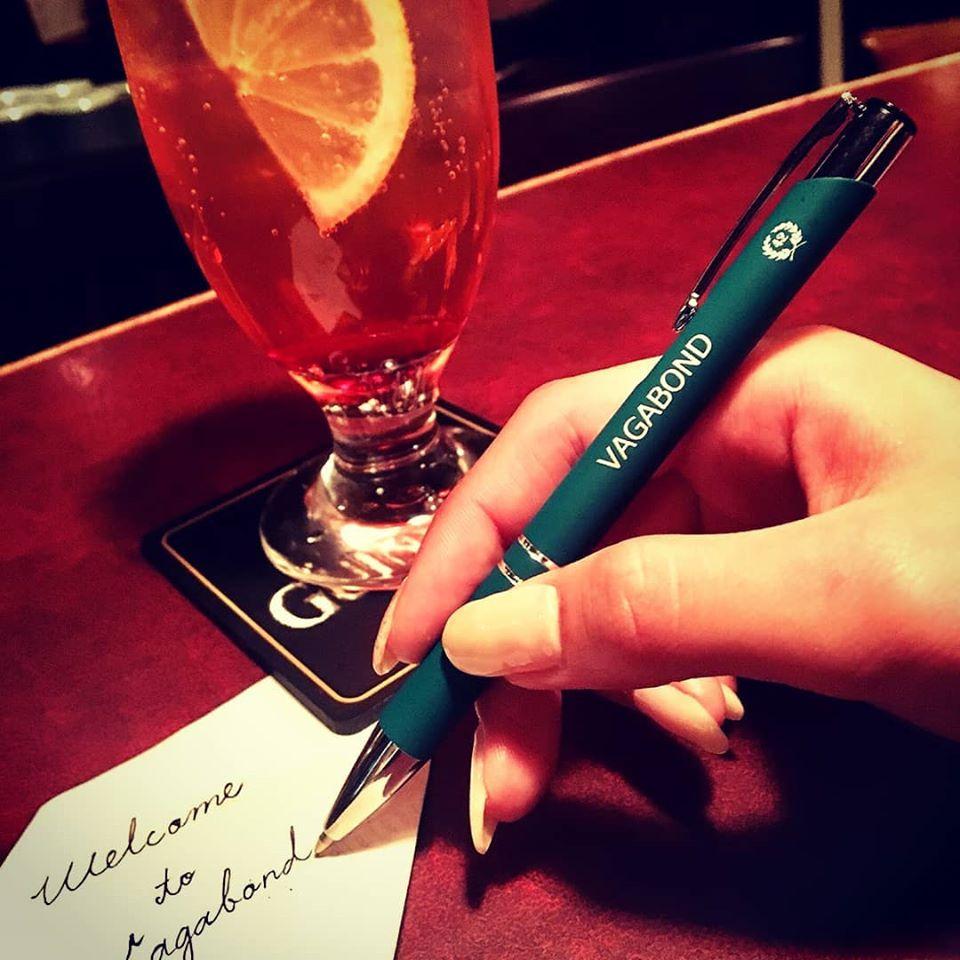 VAGABOND
G
Welcome
to
Vagabond